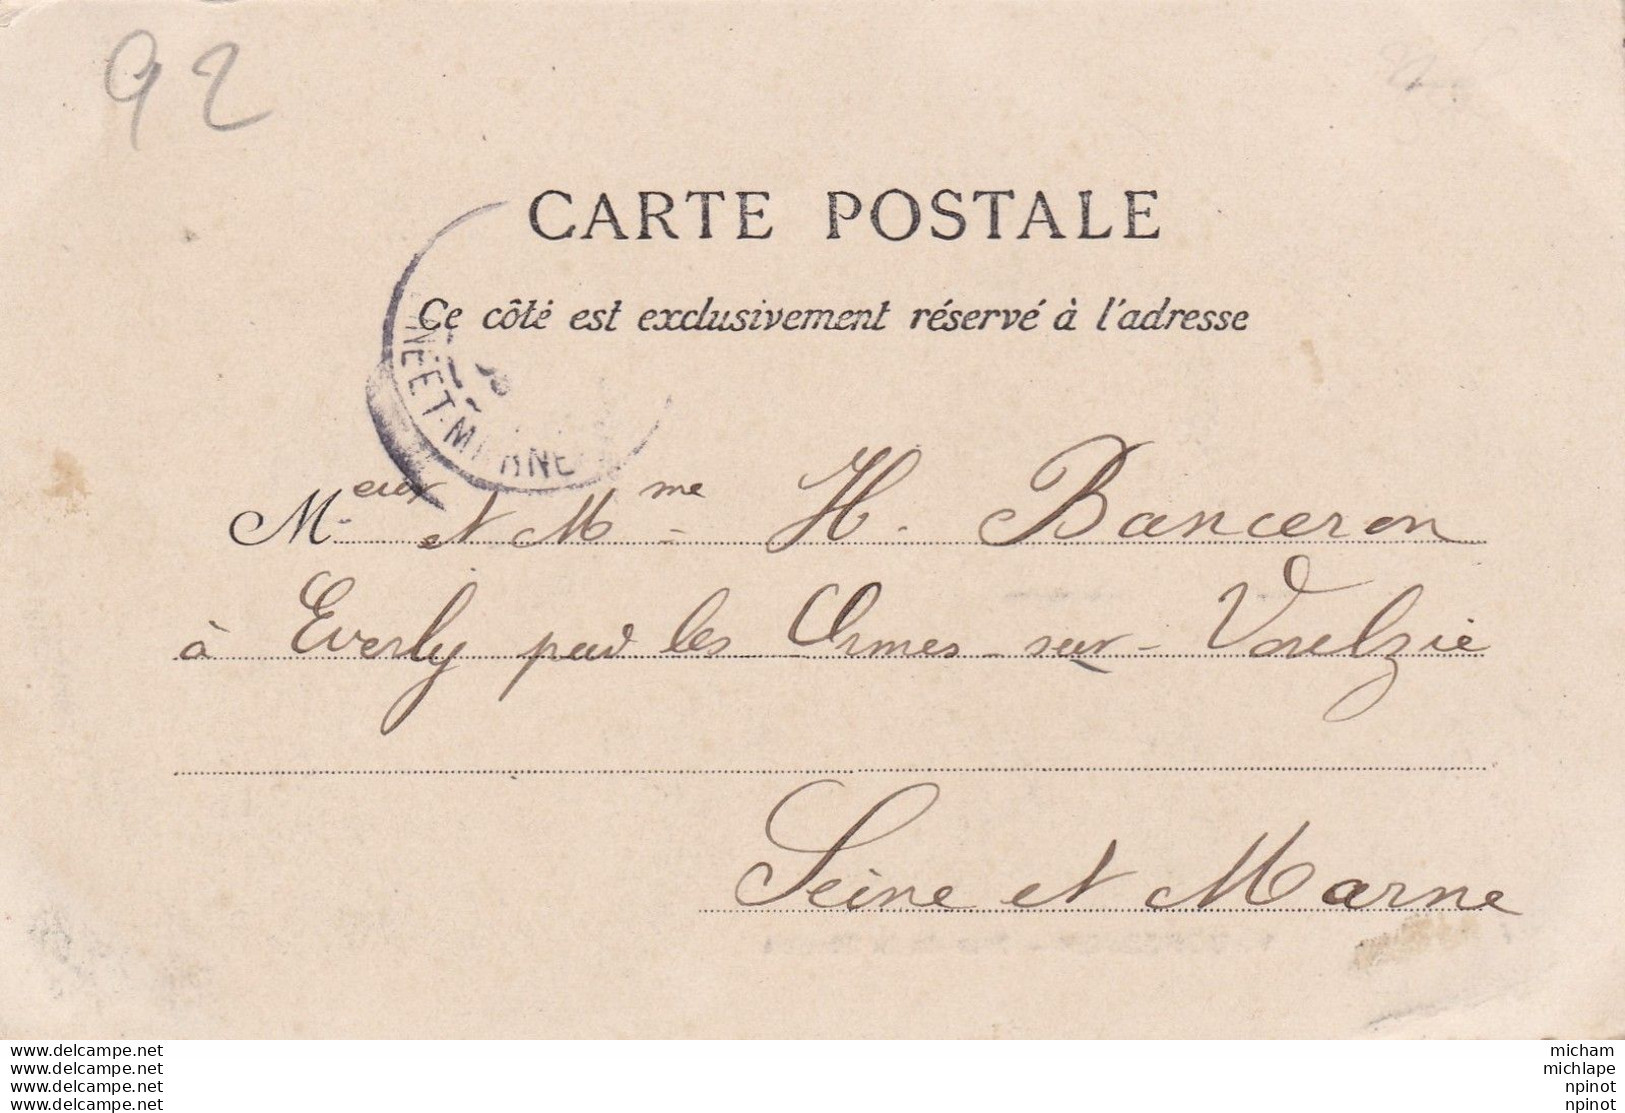 92
CARTE POSTALE
Ce côté est exclusivement réservé à l'adresse
NE ET-MARNE
Mr eur et Mme H. Banceron
à Everly par les Ormes-sur-Voulzie
Seine et Marne
www.delcampe.net micham
www.delcampe.net michlape
www.delcampe.net npinot
www.delcampe.net npinot